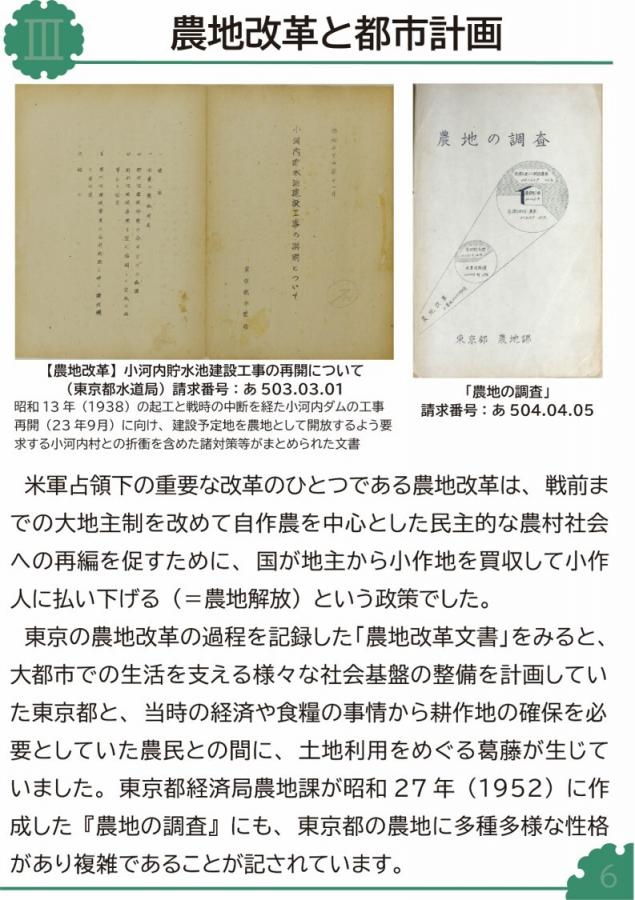 III
農地改革と都市計画
小河内貯水池建設工事の再開について
農地の調査
農地改革
東京都 農地課
【農地改革】小河内貯水池建設工事の再開について
（東京都水道局）請求番号：あ503.03.01
昭和13年（1938）の起工と戦時の中断を経た小河内ダムの工事
再開（23年9月）に向け、建設予定地を農地として開放するよう要
求する小河内村との折衝を含めた諸対策等がまとめられた文書
「農地の調査」
請求番号：あ504.04.05
米軍占領下の重要な改革のひとつである農地改革は、戦前ま
での大地主制を改めて自作農を中心とした民主的な農村社会
への再編を促すために、国が地主から小作地を買収して小作
人に払い下げる（＝農地解放）という政策でした。
東京の農地改革の過程を記録した「農地改革文書」をみると、
大都市での生活を支える様々な社会基盤の整備を計画してい
た東京都と、当時の経済や食糧の事情から耕作地の確保を必
要としていた農民との間に、土地利用をめぐる葛藤が生じて
いました。東京都経済局農地課が昭和27年（1952）に作
成した『農地の調査』にも、東京都の農地に多種多様な性格
があり複雑であることが記されています。
6